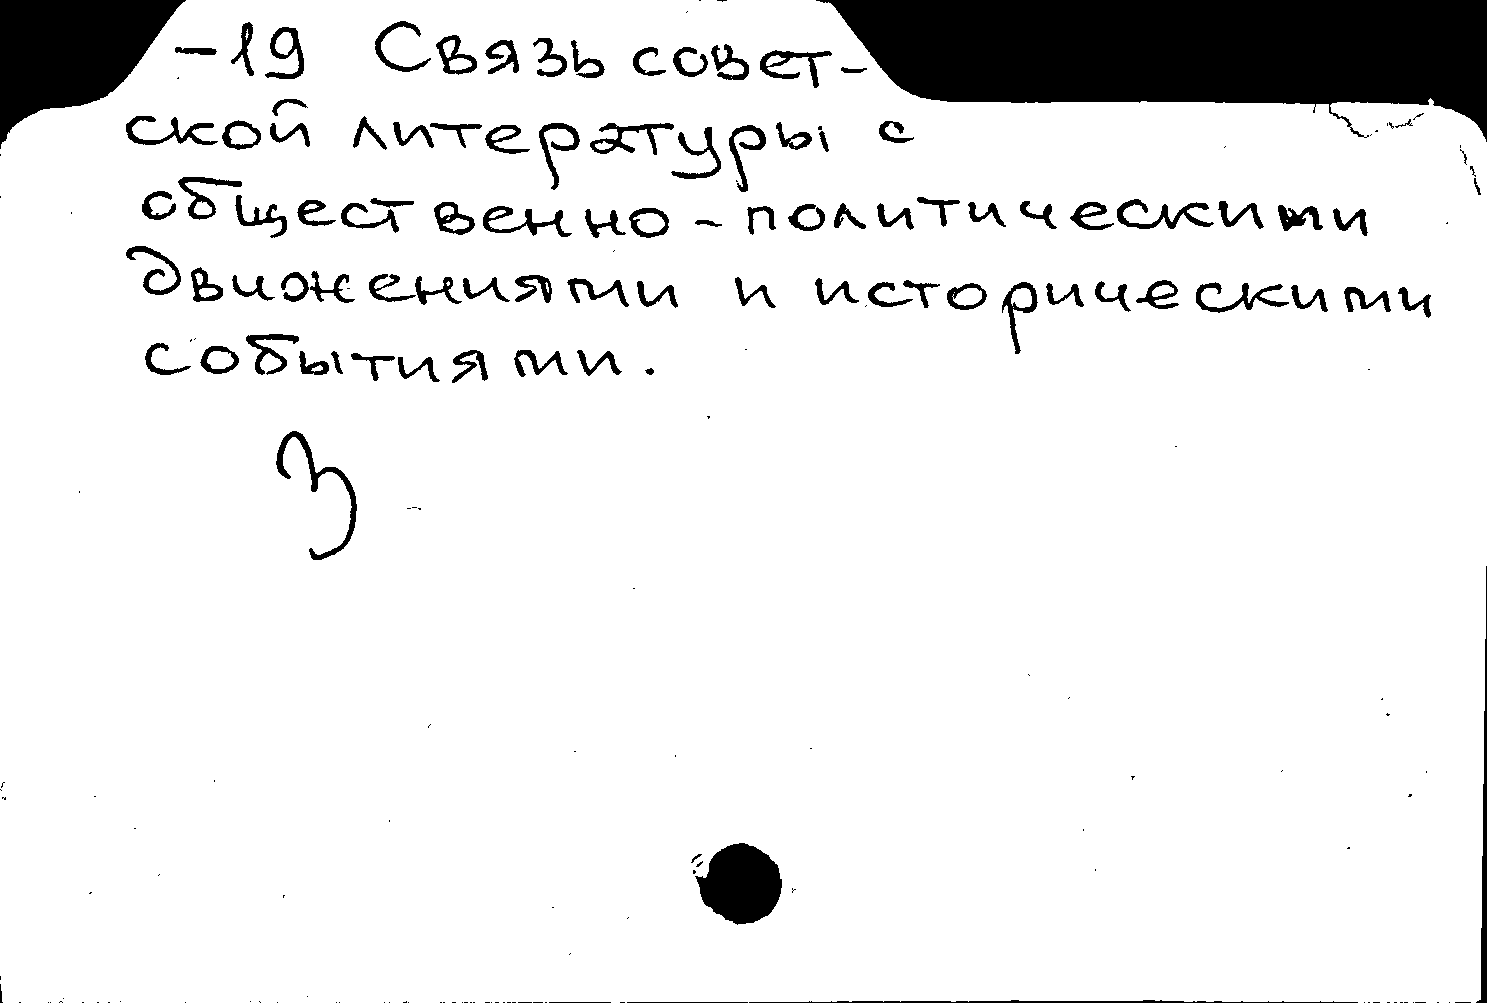 -19 Связь совет-
ской литературы с
общественно-политическими
движениями и историческими
событиями.
З